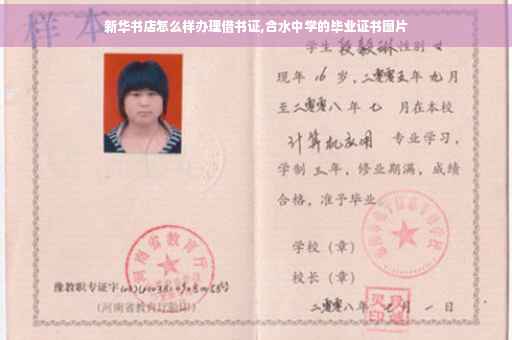 新华书店怎么样办理借书证,合水中学的毕业证书图片
样本
学生段毅琳性别女
现年16岁,二零零五年九月
至二零零八年七月在本校
计算机应用专业学习,
学制三年,修业期满,成绩
合格,准予毕业。
学校(章)
校长(章)
二零零八年七月一日
河南省教育厅
豫教职专证字
(河南省教育厅验印)